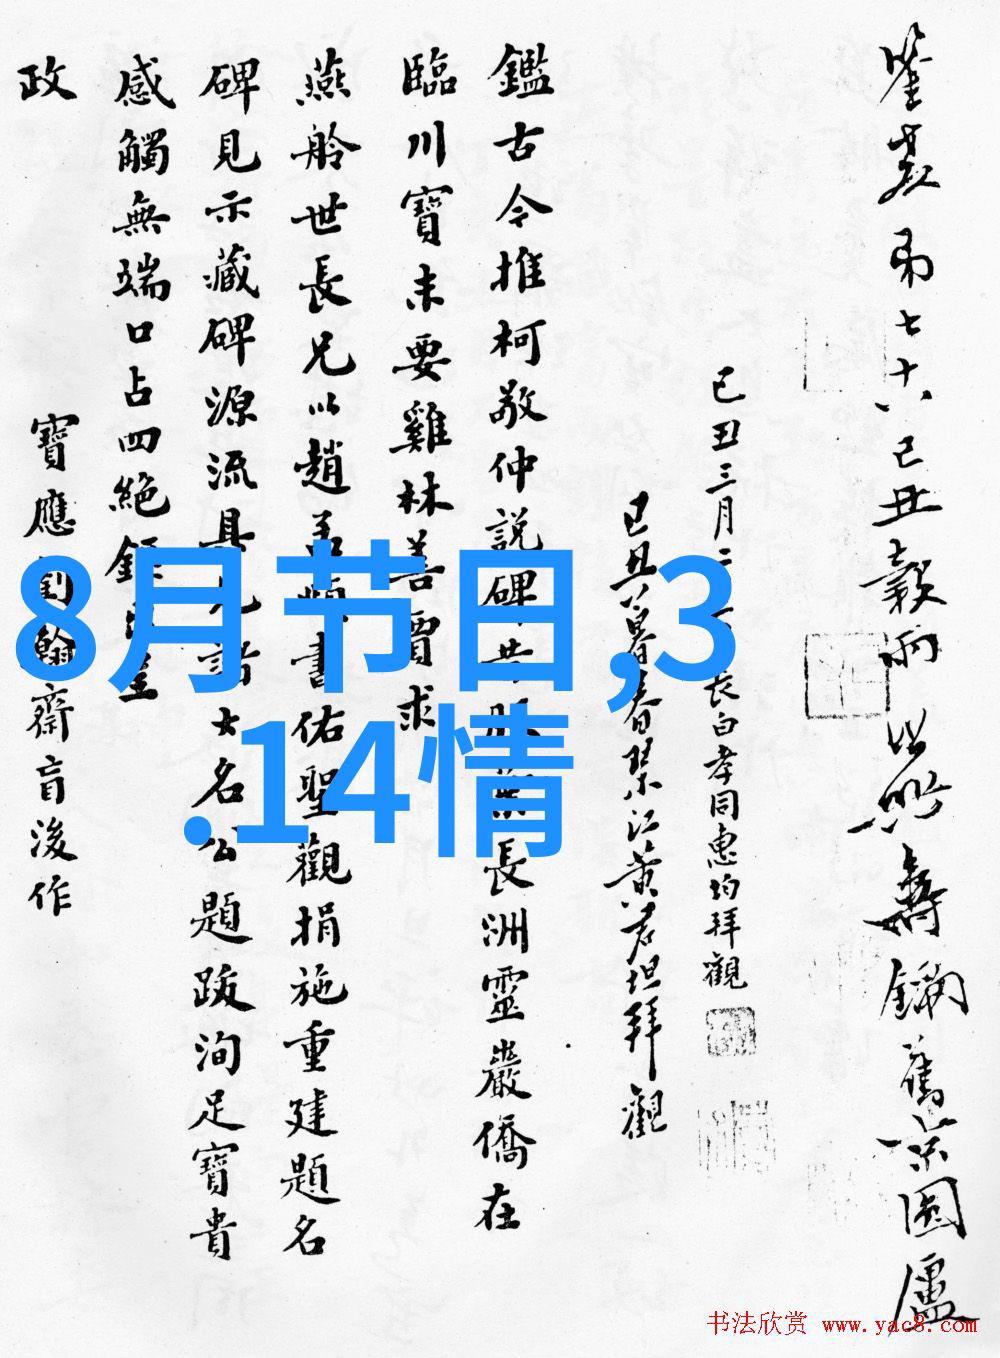 鑒裳弟七十八己丑穀雨
己丑三月二
長白孝同惠均拜觀
己丑暮春琴江黃君坦拜觀
鑑古今推柯敬仲說碑
長洲靈巖僑在
臨川寶未要雞林善賈求
燕舲世長兄以趙
書佑聖觀捐施重建題名
碑見示藏碑源流具
諸大名公題跋洵足寶貴
感觸無端口占四絕錄
政
寶應劉翰齋盲後作
8月节目,3
.14情
书法欣赏 www.yac8.com